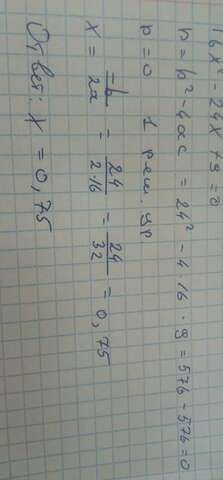 16x² - 24x + 9 = 0
D = b² - 4ac = 24² - 4 16 · 9 = 576 - 576 = 0
D = 0 1 реш. ур
X = -b/2a = 24/2·16 = 24/32 = 0,75
Ответ: X = 0,75